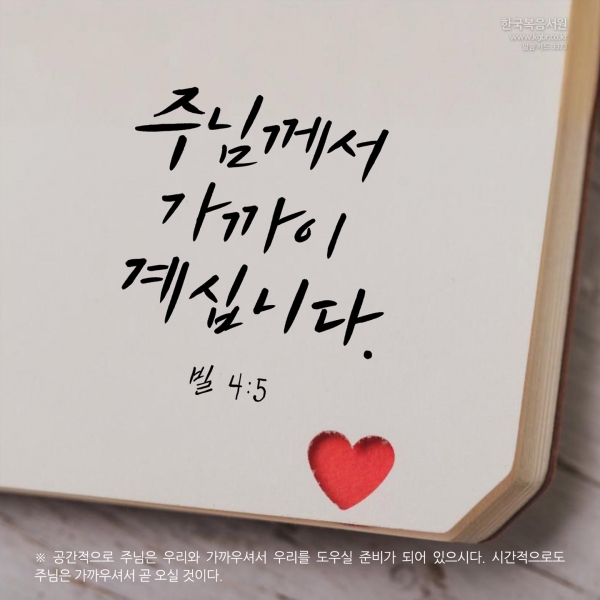 한국복음서원
www.kgbr.co.kr
주님께서
가까이
계십니다.
빌 4:5
※ 공간적으로 주님은 우리와 가까우셔서 우리를 도우실 준비가 되어 있으시다. 시간적으로도
주님은 가까우셔서 곧 오실 것이다.